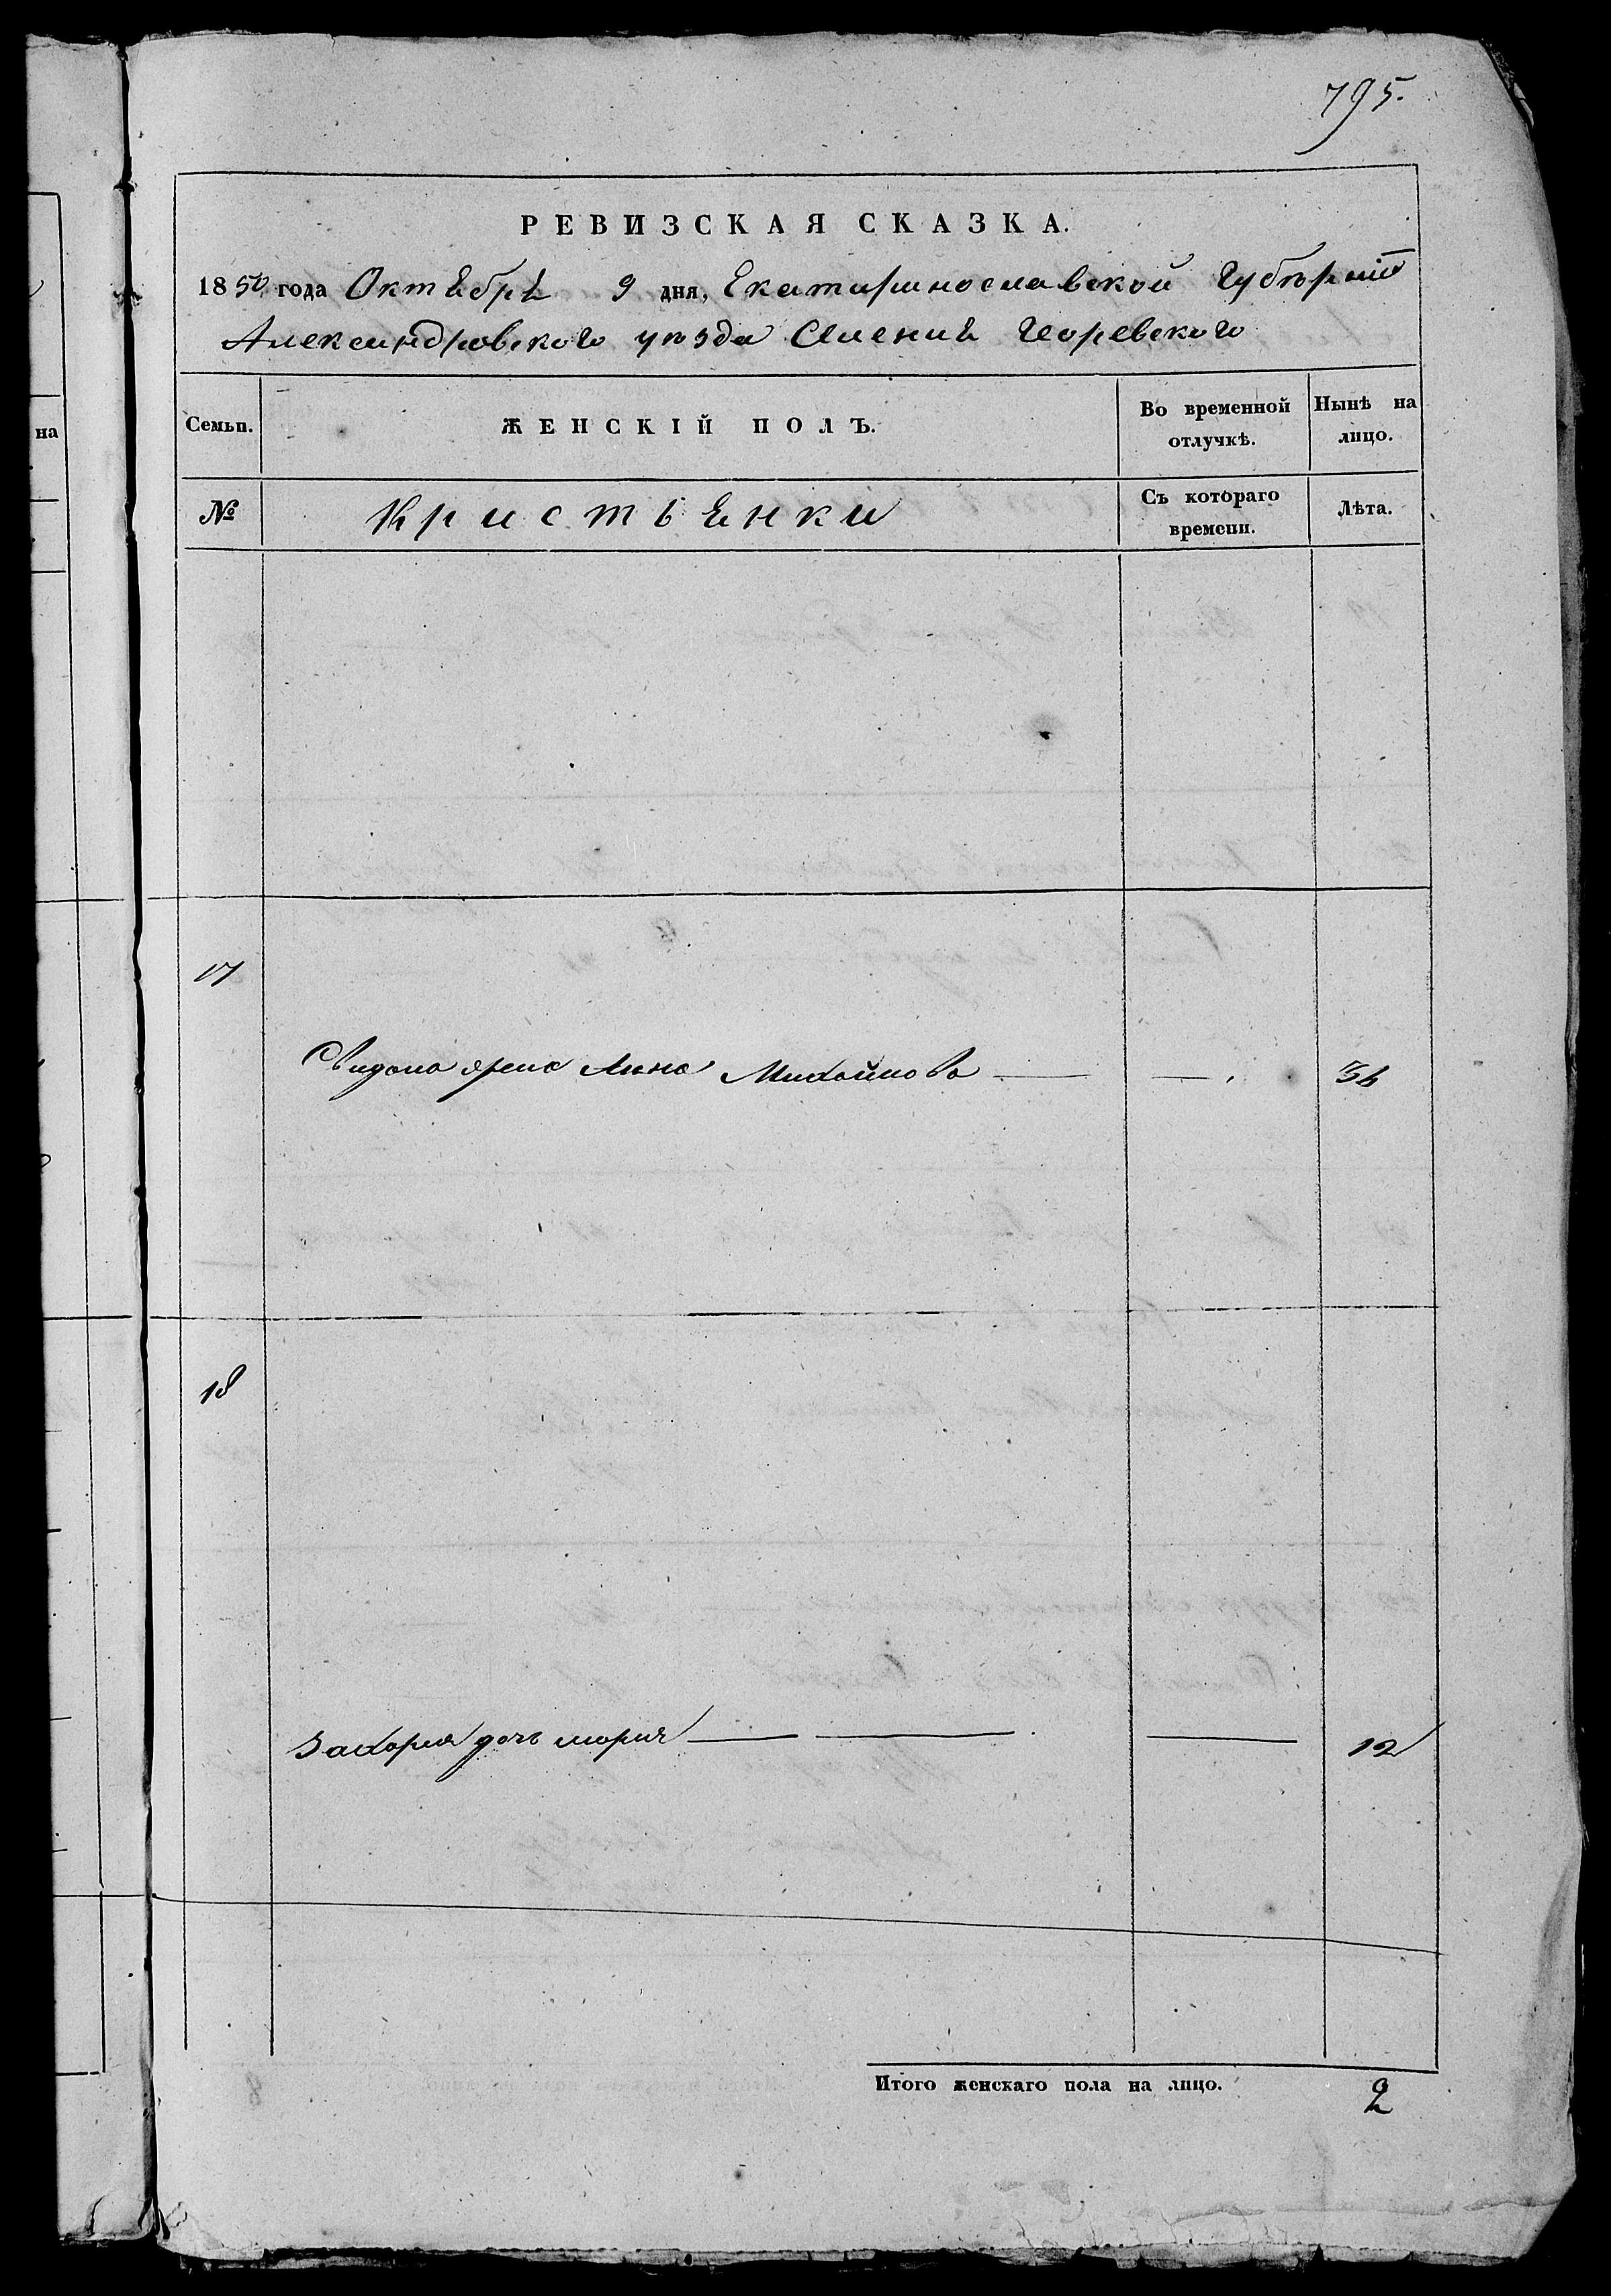 795.
РЕВИЗСКАЯ СКАЗКА.
1850 года Октября 9 дня, Екатириносла вской Губернии
Александровского уезда Имения Георевского
на
Семьи.
ЖЕНСКІЙ ПОЛЪ.
Во временной отлучкѣ.
Нынѣ на лицо.
№
Кристьянки
Съ котораго времени.
Лѣта.
17
жена Анна Михайлова — — 36
18
Захория дочь мария — — — 12
Итого женскаго пола на лицо. 2